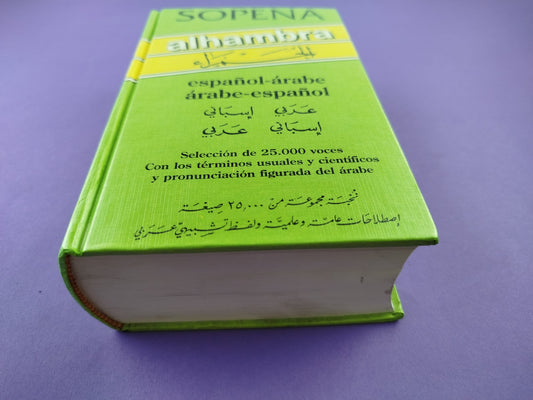 SOPENA
alhambra
الحمراء
español-árabe
árabe-español
عربي إسباني
إسباني عربي
Selección de 25.000 voces
Con los términos usuales y científicos
y pronunciación figurada del árabe
نخبة مجموعة من ٢٥,٠٠٠ صيغة
إصطلاحات عامة وعلمية ولفظ تشبيهي عربي